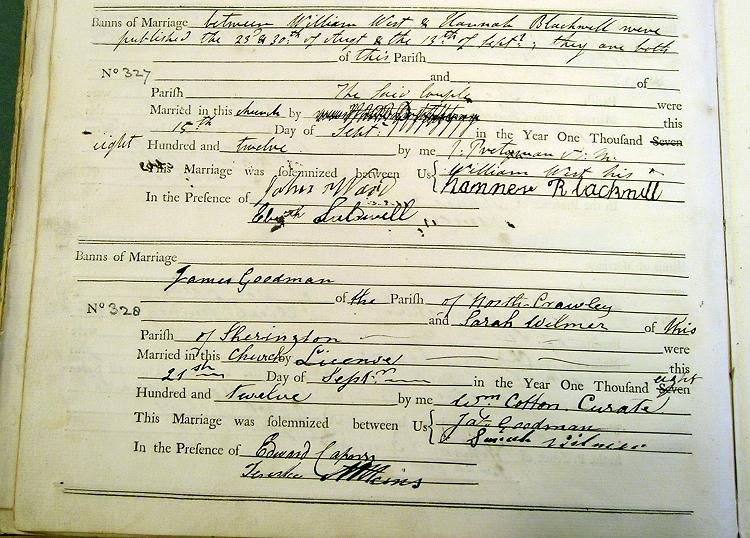 Banns of Marriage between William West & Hannah Blackwell were
published the 23d & 30th of Augt & the 13th of Septr; they are both
of this Parish
No 327 and of
Parish The said couple were
Married in this church by this
15th Day of Sept. in the Year One Thousand Seven
eight Hundred and twelve by me J. Pretyman
This Marriage was solemnized between Us William West his x
Hannew Blackwill
In the Presence of John Ward
Elizth
Banns of Marriage
James Goodman
of the Parish of North Crawley
No 328 and Sarah Wilmer of this
Parish of Sherington were
Married in this Church by License this
21st Day of Septr in the Year One Thousand Seven eight
Hundred and twelve by me Wm Cotton Curate
This Marriage was solemnized between Us Jas Goodman
Sarah Wilmer
In the Presence of Edward